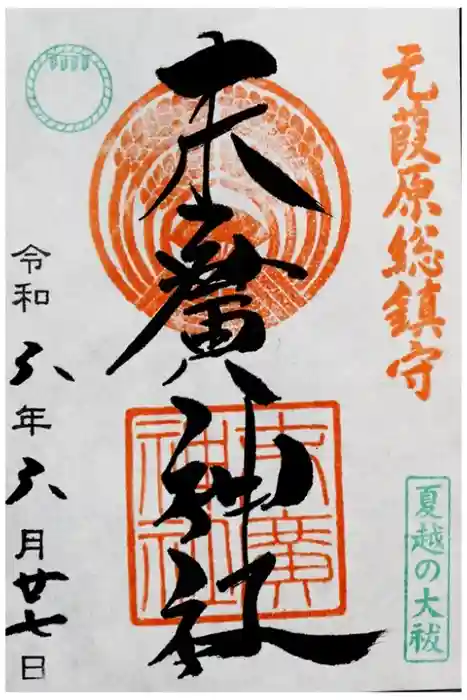 元葭原総鎮守
夏越の大祓
末廣神社
末廣
神社
令和六年六月廿七日